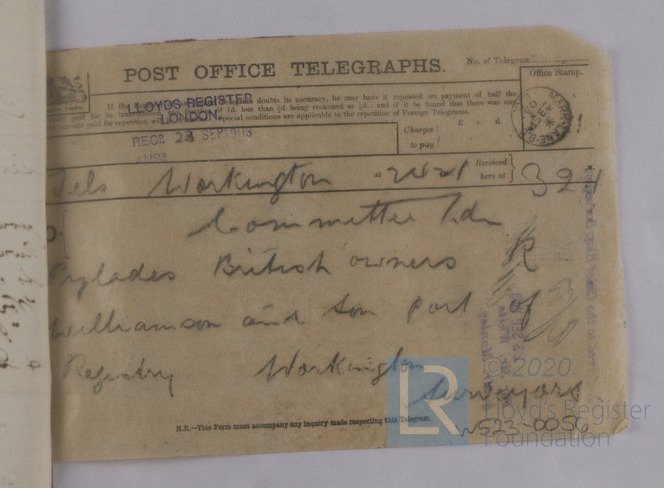 POST OFFICE TELEGRAPHS.
No. of Telegram
Office Stamp.
If the
doubts its accuracy, he may have it repeated on payment of half the
paid for its
of 1d. less than ½d. being reckoned as ½d.; and if it be found that there was any
paid for repetition
Special conditions are applicable to the repetition of Foreign Telegrams.
LLOYDS REGISTER
LONDON.
RECD 23 SEP 1903
ANSD
Charges
to pay
£ s. d.
Tels Workington
at
Received
here at
3 24
Committee Ldn
Pylades British owners R
Williamson and Son port of
Registry Workington
Surveyors
N.B.—This Form must accompany any inquiry made respecting this Telegram.
W523-0056
LR
© 2020
Lloyd's Register
Foundation